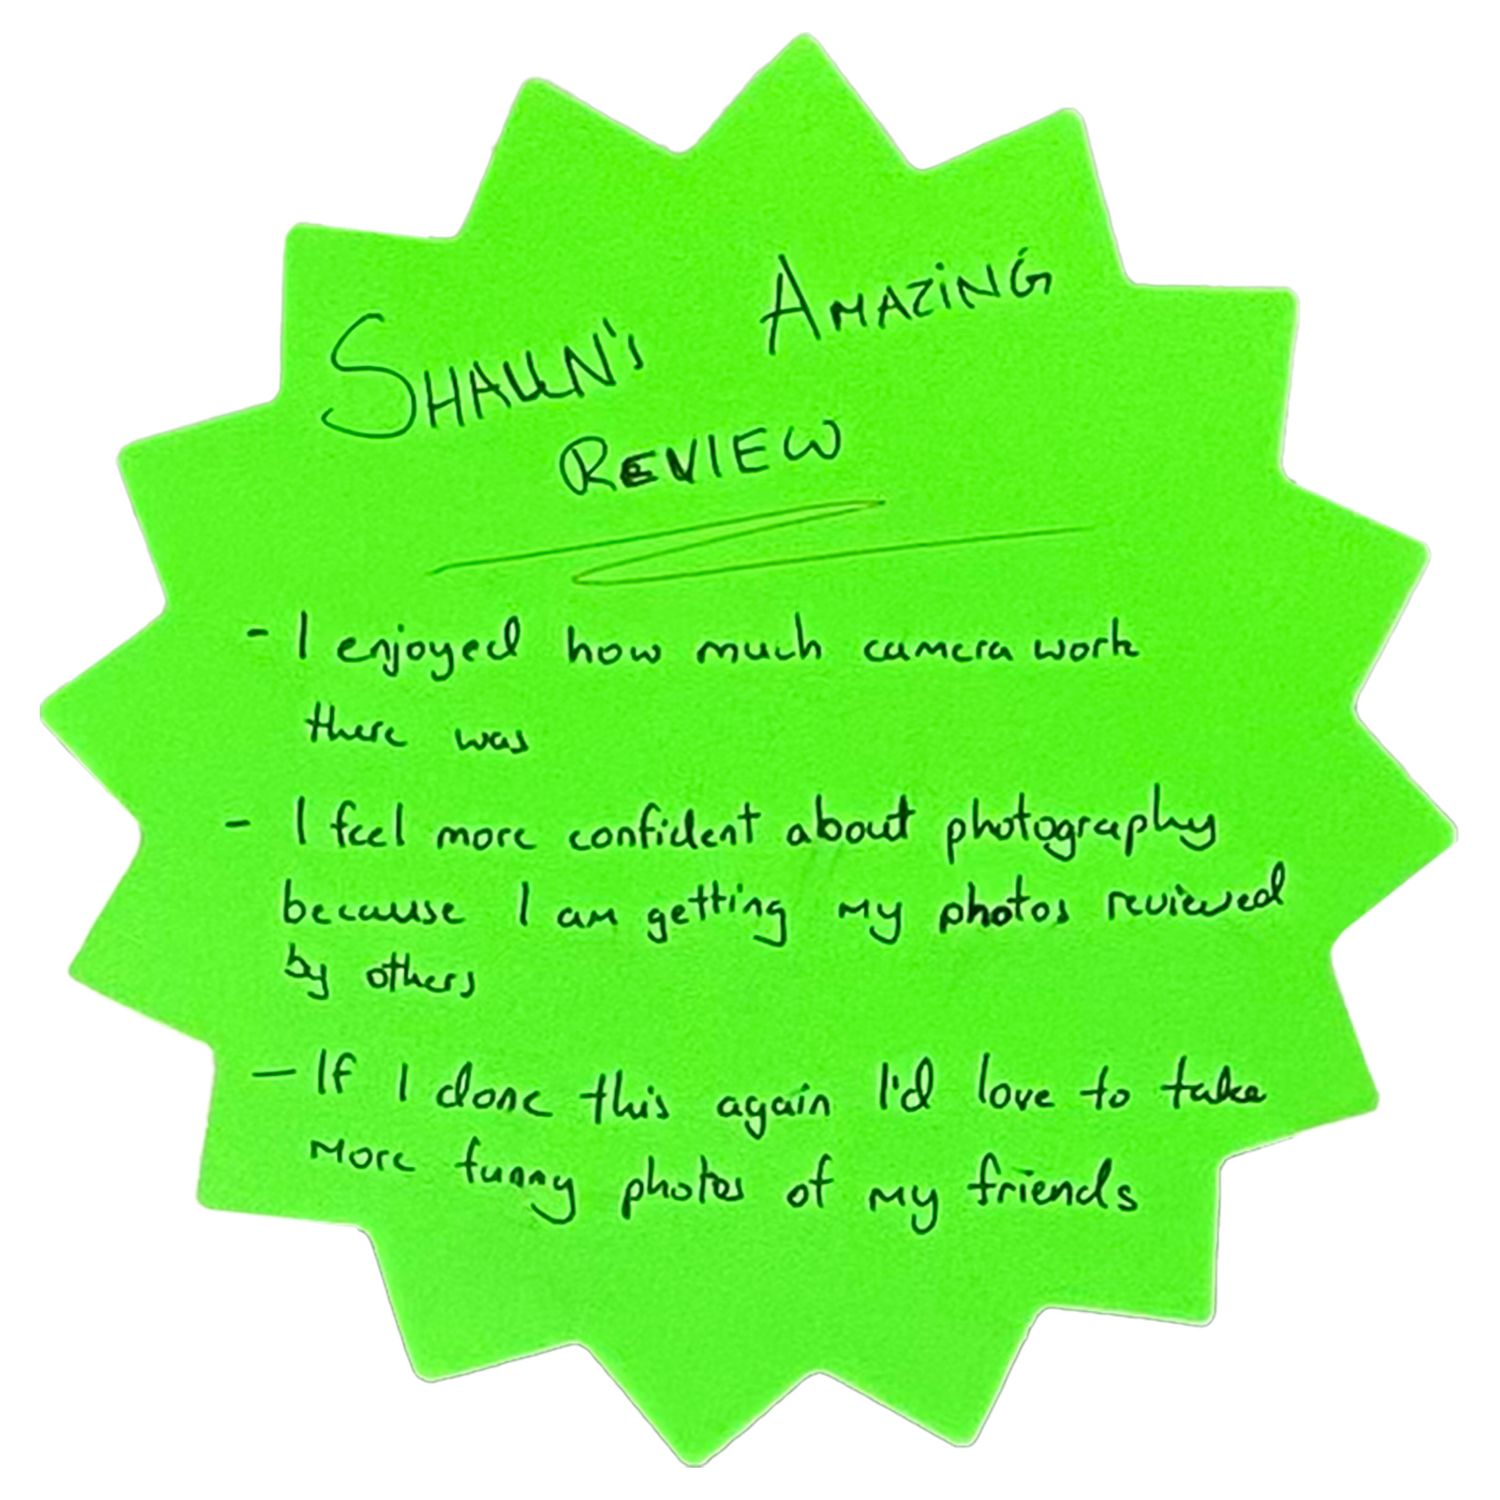 SHAUN'S AMAZING
REVIEW
- I enjoyed how much camera work
there was
- I feel more confident about photography
because I am getting my photos reviewed
by others
- If I done this again I'd love to take
more funny photos of my friends